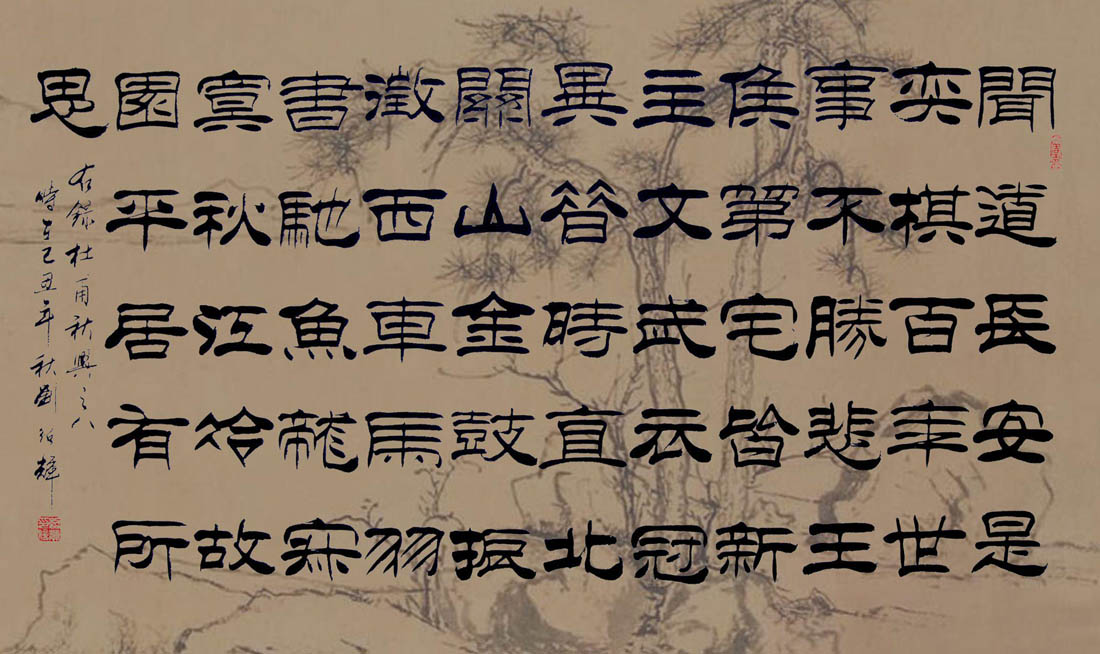 聞道長安是
奕棋百年世
事不勝悲王
侯第宅皆新
主文武衣冠
異昔時直北
關山金鼓振
徵西車馬羽
書馳魚龍寂
寞秋江冷故
園平居有所
思
右錄杜甫秋興之八
時在己丑年秋劉輝